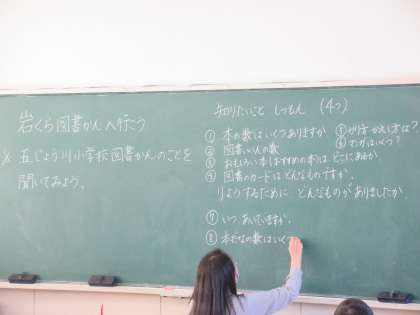 岩くら図書かんへ行こう
※ 五じょう川小学校図書かんのことを
聞いてみよう。
知りたいこと しつもん (4つ)
① 本の数はいくつありますか
② 図書いいんの数
③ おもしろい本(おすすめの本)は どこにあるか
④ 図書のカードは どんなものですか。
⑤ かり方 かえし方は?
⑥ マンガはいくつ?
りようするために どんなものがありましたか。
⑦ いつ あいていますか。
⑧ 本だなの数はいくつ